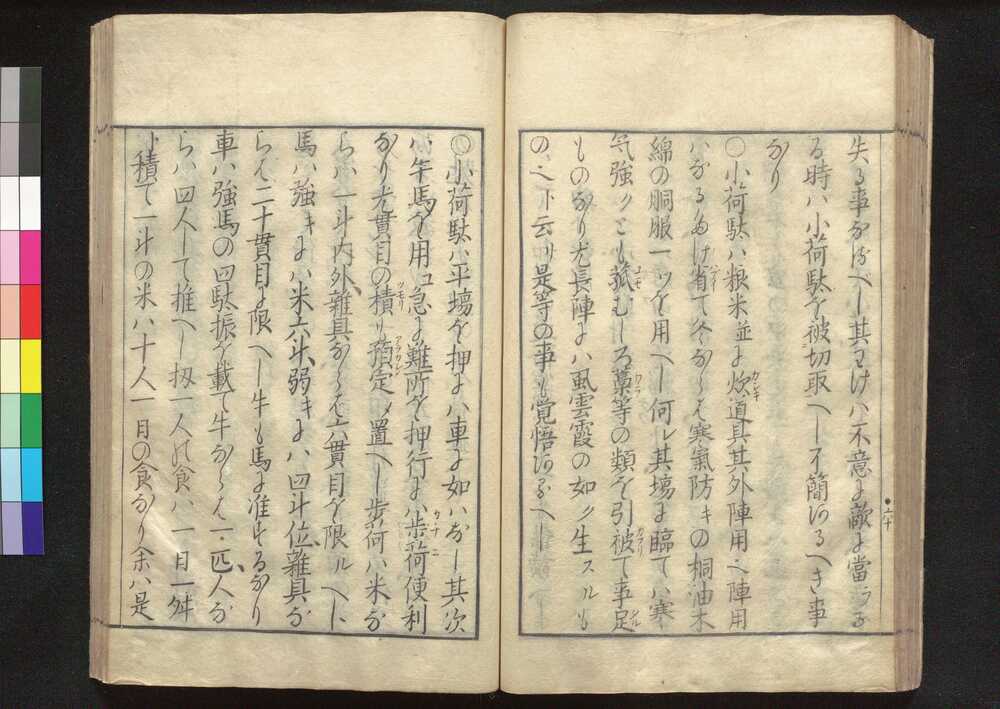 失る事なかるべし其わけハ不意に敵に當ラる
る時ハ小荷駄を被切取へし不簡ある へき事
なり
○小荷駄ハ粮米並に炊道具其外陣用之陣用
ハなるたけ省て冬ならは寒氣防キの桐油木
綿の胴服一ツを用へし何レ其場に臨てハ寒
気強クとも菰むしろ藁等の類を引被て事足
ものなり尤長陣にハ風雲霞の如ク生スルも
の之ト云リ是等の事も覚悟あるへし
六十
○小荷駄ハ平場を押にハ車に如ハなし其次
ハ牛馬を用ユ急に難所を押行にハ歩荷便利
なり尤貫目の積リ預定メ置へし歩荷ハ米な
らハ一斗内外雑具ならは六貫目を限ルヘシ
馬ハ強キにハ米六斗弱キにハ四斗位雑具な
らは二十貫目に限へし牛も馬に准するなり
車ハ強馬の四駄振を載て牛ならは一匹人な
らハ四人して推へし扨一人の食ハ一日一舛
ト積て一斗の米ハ十人一日の食なり余ハ是